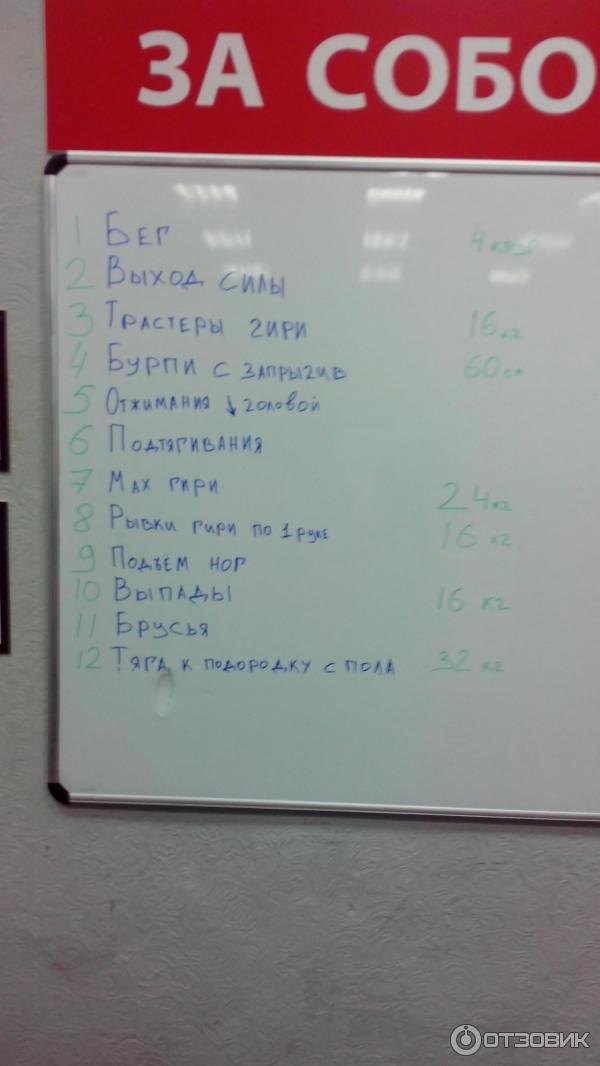 ЗА СОБО
1 Бег
2 Выход силы
3 Трастеры гири 16 кг
4 Бурпи с запрыгив 60 см
5 Отжимания ↓ головой
6 Подтягивания
7 Мах гири 24 кг
8 Рывки гири по 1 руке 16 кг
9 Подъём ног
10 Выпады 16 кг
11 Брусья
12 Тяга к подородку с пола 32 кг
ОТЗОВИК